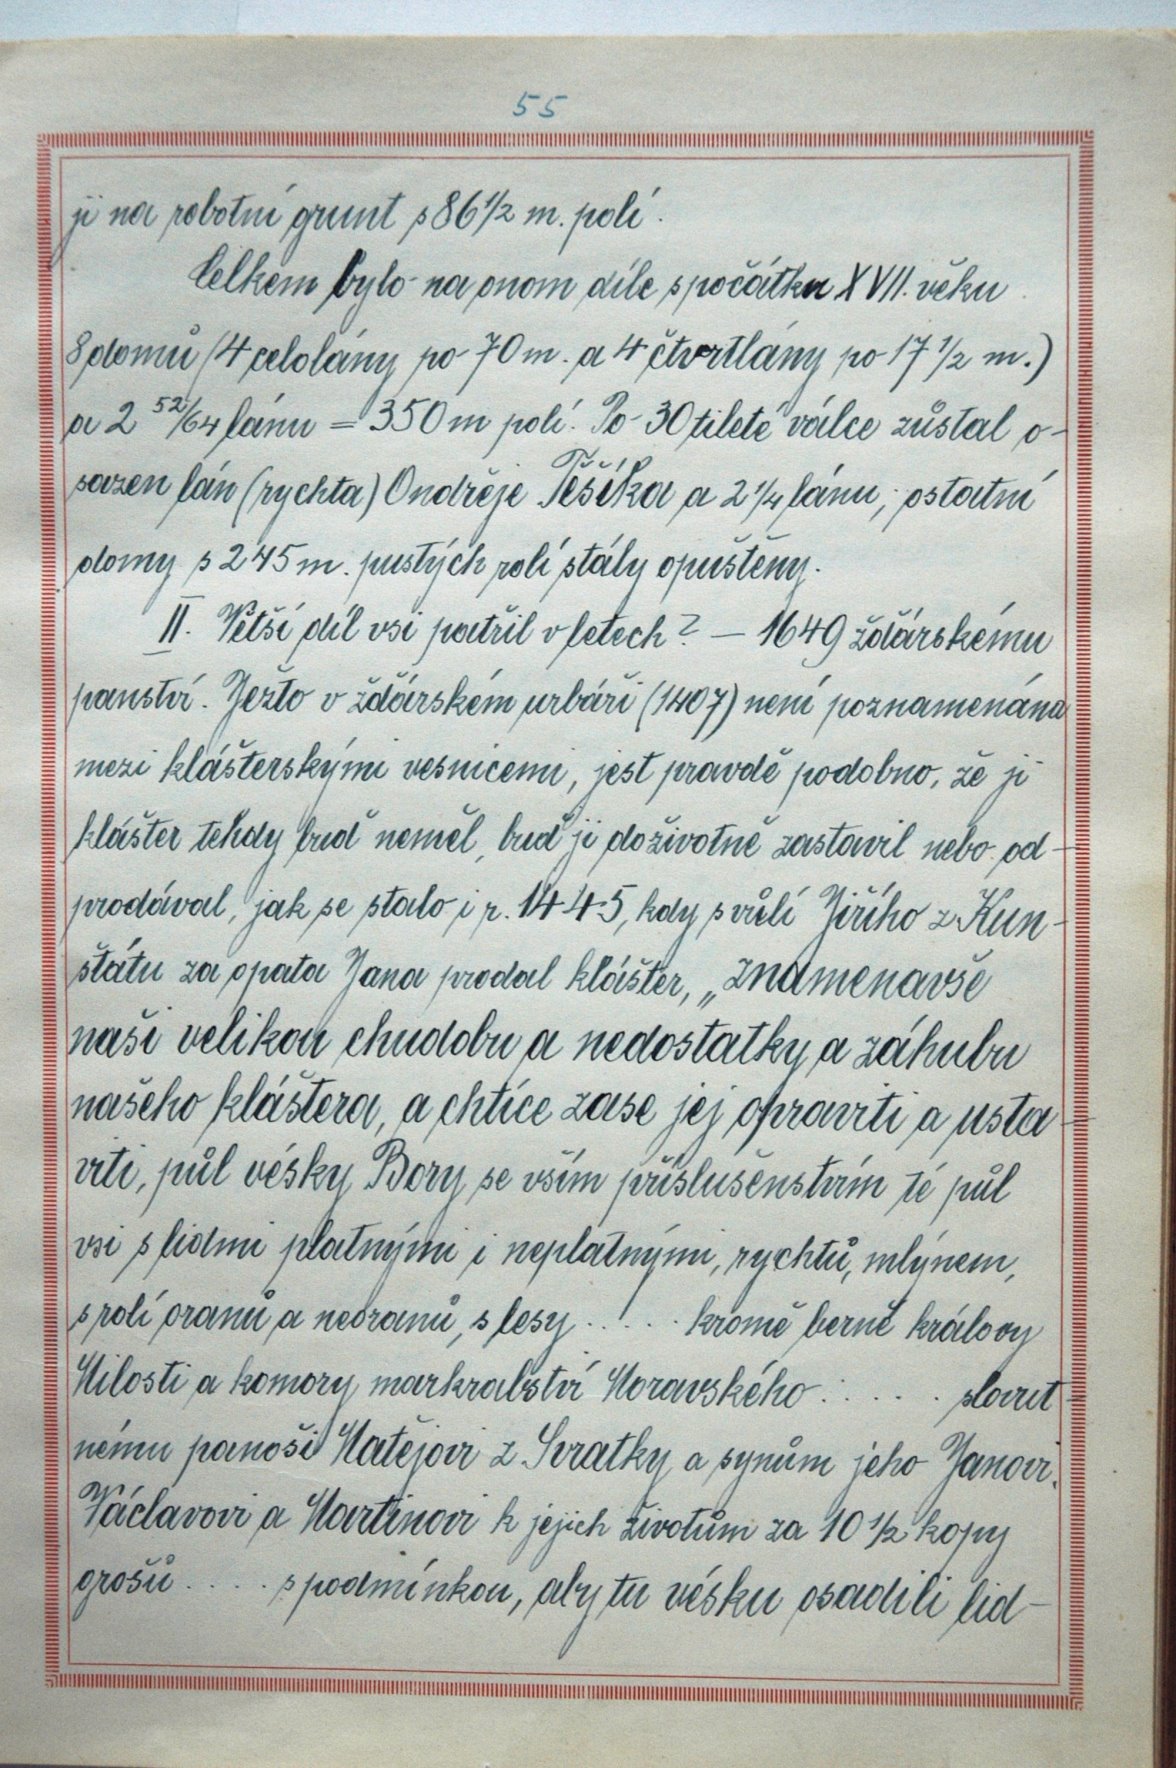 55
ji na robotní grunt s 86 1/2 m. polí.
Celkem bylo na onom díle s počátku XVII. věku
8 domů (4 celolány po 70 m. a 4 čtvrtlány po 17 1/2 m.)
a 2 52/64 lánu = 350 m polí. Po 30tileté válce zůstal o-
sazen lán (rychta) Ondřeje Těšíka a 2 1/4 lánu; ostatní
domy s 245 m. pustých rolí stály opuštěny.
II. Větší díl vsi patřil v letech ? — 1649 žďárskému
panství. Ježto v žďárském urbáři (1407) není poznamenána
mezi klášterskými vesnicemi, jest pravdě podobno, že ji
klášter tehdy buď neměl, buď ji doživotně zastavil nebo od-
prodával, jak se stalo i r. 1445, kdy s vůlí Jiřího z Kun-
štátu za opata Jana prodal klášter, „znamenavše
naši velikou chudobu a nedostatky a záhubu
našeho kláštera, a chtíce zase jej opraviti a usta-
viti, půl vésky Bory se vším příslušenstvím té půl
vsi s lidmi platnými i neplatnými, rychtů, mlýnem,
s rolí oranů a neoranů, s lesy ..... kromě berně královy
Milosti a komory markrabství Moravského ..... slovut-
nému panoši Matějovi z Svratky a synům jeho Janovi,
Václavovi a Martinovi k jejich životům za 10 1/2 kopy
grošů .... s podmínkou, aby tu vésku osadili lid-